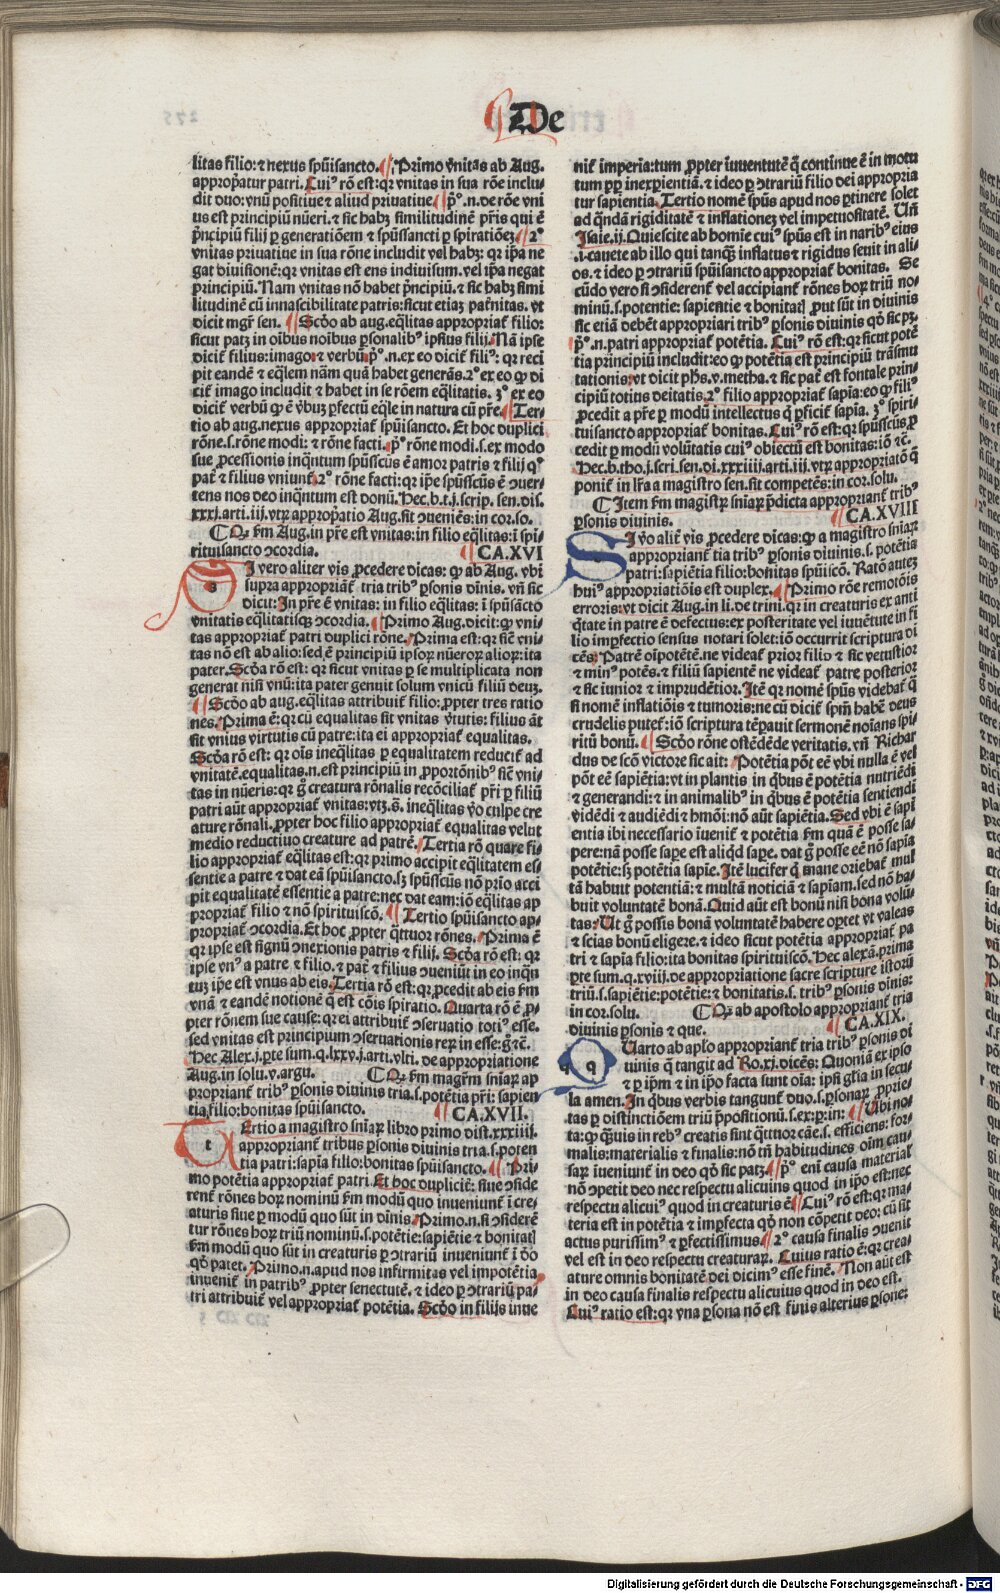 De
litas filio: ⁊ nexus spūisancto. Primo vnitas ab Aug.
appropriatur patri. Cuiꝰ rō est: qꝛ vnitas in sua rōe inclu⸗
dit duo: vnū positiue ⁊ aliud priuatiue. pͦ. n. de rōe vni
us est principiū nūeri. ⁊ sic habꝫ similitudinē pr̄is qui ē
p̄ncipiū filij ꝑ generatiōem ⁊ spūssancti ꝑ spiratiōeꝫ. 2ͦ
vnitas priuatiue in sua rōne includit vel habꝫ: qꝛ ip̄a ne
gat diuisionē: qꝛ vnitas est ens indiuisum. vel ip̄a negat
principiū. Nam vnitas nō habet p̄ncipiū. ⁊ sic habꝫ simi
litudinē cū innascibilitate patris: sicut etiaꝫ pat̄nitas. vt
dicit mgr̄ sen. Scd̄o ab aug. eq̄litas appropriat̄ filio:
sicut patꝫ in oībus noībus ꝑsonalibꝰ ipsius filij. Nā ipse
dicit̄ filius: imago: ⁊ verbū. pͦ. n. ex eo dicit̄ filiꝰ: qꝛ reci
pit eandē ⁊ eq̄lem nām quā habet generās. 2ͦ ex eo ꝙ di
cit̄ imago includit ⁊ habet in se rōem eq̄litatis. 3ͦ ex eo
dicit̄ verbū ꝙ ē v̄buꝫ ꝑfectū eq̄le in natura cū pr̄e. Ter⸗
tio ab aug. nexus appropriat̄ spūisancto. Et hoc duplici
rōne. s. rōne modi: ⁊ rōne facti. pͦ rōne modi. s. ex modo
sue ꝓcessionis inq̄ntum spūssc̄us ē amor patris ⁊ filij qͦ
pat̄ ⁊ filius vniunt̄. 2ͦ rōne facti: qꝛ ip̄e spūssc̄us ē ↄuer⸗
tens nos deo inq̄ntum est donū. Hec. b. t. j. scrip. sen. dis.
xxxj. arti. iij. vtꝝ appropriatio Aug. sit ↄueniēs: in cor. so.
Qꝫ ẜm Aug. in pr̄e est vnitas: in filio eq̄litas: ī spi⸗
rituisancto ↄcordia. CA.XVI
I vero aliter vis ꝓcedere dicas: ꝙ ab Aug. vbi
supra appropriant̄ tria tribꝰ ꝑsonis dīnis. vn̄ sic
dicit: In pr̄e ē vnitas: in filio eq̄litas: ī spūsācto
vnitatis eq̄litatisqꝫ ↄcordia. Primo Aug. dicit: ꝙ vni⸗
tas appropriat̄ patri duplici rōne. Prima est: qꝛ sic̄ vni⸗
tas nō est ab alio: sed ē principiū ipsoꝝ nūeroꝝ alioꝝ: ita
pater. Scd̄a rō est: qꝛ sicut vnitas ꝑ se multiplicata non
generat nisi vnū: ita pater genuit solum vnicū filiū deuꝫ.
Scd̄o ab aug. eq̄litas attribuit̄ filio: ꝓpter tres ratio
nes. Prima ē: qꝛ cū equalitas sit vnitas v̄tutis: filius āt
sit vnius virtutis cū patre: ita ei appropriat̄ equalitas.
Scd̄a rō est: qꝛ oīs ineq̄litas ꝑ equalitatem reducit̄ ad
vnitatē. equalitas. n. est principiū in ꝓportōnibꝰ sic̄ vni⸗
tas in nūeris: qꝛ g̊ creatura rōnalis recōciliat̄ pr̄i ꝑ filiū
patri aūt appropriat̄ vnitas: vtꝫ. s̄. ineq̄litas v̄o culpe cre
ature rōnali. ꝓpter hoc filio appropriat̄ equalitas velut
medio reductiuo creature ad patrē. Tertia rō quare fi⸗
lio appropriat̄ eq̄litas est: qꝛ primo accipit eq̄litatem es⸗
sentie a patre ⁊ dat eā spūisancto. sꝫ spūssc̄us nō pr̄io acci
pit equalitatē essentie a patre: nec dat eam: iō eq̄litas ap
propriat̄ filio ⁊ nō spirituisc̄o. Tertio spūisancto ap⸗
propriat̄ ↄcordia. Et hoc ꝓpter q̄ttuor rōnes. Prima ē
qꝛ ipse est signū ↄnexionis patris ⁊ filij. Scd̄a rō est: qꝛ
ipse vnꝰ a patre ⁊ filio. ⁊ pat̄ ⁊ filius ↄueniūt in eo inq̄n
tuꝫ ip̄e est vnus ab eis. Tertia rō est: qꝛ ꝓcedit ab eis ẜm
vnā ⁊ eandē notionē q̄ est cōis spiratio. Quarta rō ē ꝓ⸗
pter rōnem sue cause: qꝛ ei attribuit̄ ↄseruatio totiꝰ esse.
sed vnitas est principium ↄseruationis reꝝ in esse: g̊ ⁊c̄.
Hec Alex. j. pte sum. q. lxxv. j. arti. vlti. de appropriatione
Aug. in solu. v. argu. Qꝫ ẜm magr̄m sniaꝝ ap⸗
propriant̄ tribꝰ ꝑsonis diuinis tria. s. potētia pr̄i: sapien
tia filio: bonitas spūisancto. CA.XVII.
Ertio a magistro sn̄iaꝝ libro primo dist. xxxiiij.
appropriant̄ tribus ꝑsonis diuinis tria. s. poten
tia patri: sapīa filio: bonitas spūisancto. Pri⸗
mo potētia appropriat̄ patri. Et hoc duplicit̄: siue ↄside
rent̄ rōnes hoꝝ nominū ẜm modū quo inueniunt̄ ī cre⸗
aturis siue ꝑ modū quo sūt in dīnis. Primo. n. si ↄsiderē
tur rōnes hoꝝ triū nominū. s. potētie: sapiētie ⁊ bonitat̄
ẜm modū quo sūt in creaturis ꝑ ↄtrariū inueniunt̄ ī dō
qd̊ patet. Primo. n. apud nos infirmitas vel impotētia
inuenit̄ in patribꝰ ꝓpter senectutē. ⁊ ideo ꝑ ↄtrariū pa⸗
tri attribuit̄ vel appropriat̄ potētia. Scd̄o in filijs inue
nit̄ imperia: tum ꝓpter iuuentutē q̄ continue ē in motu
tum ꝓp̄ inexperientiā. ⁊ ideo ꝑ ↄtrariū filio dei appropria
tur sapientia. Tertio nomē spūs apud nos ꝑtinere solet
ad q̄ndā rigiditatē ⁊ inflationeꝫ vel impetuositatē. Un̄
Isaie. ij. Quiescite ab homīe cuiꝰ spūs est in naribꝰ eius
.i. cauete ab illo qui tanqꝫ inflatus ⁊ rigidus seuit in ali⸗
os. ⁊ ideo ꝑ ↄtrariū spūisancto appropriat̄ bonitas. Se
cūdo vero si ↄsiderent̄ vel accipiant̄ rōnes hoꝝ triū no⸗
minū. s. potentie: sapientie ⁊ bonitat̄ ꝓut sūt in diuinis
sic etiā debēt appropriari tribꝰ ꝑsonis diuinis qd̊ sic pꝫ.
pͦ. n. patri appropriat̄ potētia. Cuiꝰ rō est: qꝛ sicut potē
tia principiū includit: eo ꝙ potētia est principiū trāsmu
tationis: vt dicit ph̄s. v. metha. ⁊ sic pat̄ est fontale prin⸗
cipiū totius deitatis. 2ͦ filio appropriat̄ sapīa: eo ꝙ filiꝰ
ꝓcedit a pr̄e ꝑ modū intellectus q̄ ꝑficit̄ sapīa. 3ͦ spiri⸗
tuisancto appropriat̄ bonitas. Cuiꝰ rō est: qꝛ spūssc̄us ꝓ
cedit ꝑ modū volūtatis cuiꝰ obiectū est bonitas: iō ⁊c̄.
Hec. b. tho. j. scri. sen. di. xxxiiij. arti. iij. vtꝝ appropriatō q̄
ponit̄ in lr̄a a magistro sen. sit competēs: in cor. solu.
Item ẜm magistꝝ sniaꝝ p̄dicta appropriant̄ tribꝰ
ꝑsonis diuinis. CA.XVIII
I vō alit̄ vis ꝓcedere dicas: ꝙ a magistro sniaꝝ
appropriant̄ tia tribꝰ ꝑsonis diuinis. s. potētia
patri: sapiētia filio: bonitas spūiscō. Ratō autēꝫ
huiꝰ appropriatiōis est duplex. Primo rōe remotōis
erroris: vt dicit Aug. in li. de trini. qꝛ in creaturis ex anti
q̄tate in patre ē defectus: ex posteritate vel iuuētute in fi
lio imꝑfectio sensus notari solet: iō occurrit scriptura di
cēs: Patrē oīpotētē. ne videat̄ prior filio ⁊ sic vetustior
⁊ minꝰ potēs. ⁊ filiū sapientē ne videat̄ patre posterior
⁊ sic iunior ⁊ imprudētior. Itē qꝛ nomē spūs videbat̄ q̄
si nomē inflatiōis ⁊ tumoris: ne cū dicit̄ spm̄ habē deus
crudelis putet̄: iō scriptura tēperauit sermonē noīans spi
ritū bonū. Scd̄o rōne ostēdēde veritatis. vn̄ Richar
dus de scō victore sic ait: Potētia pōt eē vbi nulla ē vel
pōt eē sapiētia: vt in plantis in q̄bus ē potētia nutriēdi
⁊ generandi: ⁊ in animalibꝰ in q̄bus ē potētia sentiendi
vidēdi ⁊ audiēdi ⁊ hmōi: nō aūt sapiētia. Sed vbi ē sapi
entia ibi necessario iuenit̄ ⁊ potētia ẜm quā ē posse sa⸗
pere: nā posse sape est aliqd̄ sape. dat g̊ posse eē nō sapīa
potētie: sꝫ potētia sapīe. Itē lucifer q̄ mane oriebat̄ mul
tā habuit potentiā: ⁊ multā noticiā ⁊ sapīam. sed nō ha⸗
buit voluntatē bonā. Quid aūt est bonū nisi bona volū
tas: Ut g̊ possis bonā voluntatē habere oꝑtet vt valeas
⁊ scias bonū eligere. ⁊ ideo sicut potētia appropriat̄ pa
tri ⁊ sapīa filio: ita bonitas spirituisc̄o. Hec alexā. prima
ꝑte sum. q. xviij. de appropriatione sacre scripture istoꝝ
triū. s. sapiētie: potētie: ⁊ bonitatis. s. tribꝰ ꝑsonis dīnis:
in cor. solu. Qꝫ ab apostolo appropriant̄ tria
diuinis ꝑsonis ⁊ que. CA.XIX.
Uarto ab aplo appropriant̄ tria tribꝰ ꝑsonis di
uinis q̄ tangit ad Ro. xj. dicēs: Quoniā ex ipso
⁊ ꝑ ip̄m ⁊ in ip̄o facta sunt oīa: ipsi gl̄ia in secu⸗
la amen. In q̄bus verbis tangunt̄ duo. s. ꝑsonaꝝ ꝓprie⸗
tas ꝑ distinctiōem triū p̄positionū. s. ex: ꝑ: in: Ubi no⸗
ta: ꝙ q̄uis in rebꝰ creatis sint q̄ttuor cāe. s. efficiens: for⸗
malis: materialis ⁊ finalis: nō tn̄ habitudines oīm cau⸗
saꝝ iueniunt̄ in deo qd̊ sic patꝫ. pͦ enī causa materiał
nō ↄpetit deo nec respectu alicuius quod in ip̄o est: nec
respectu alicuiꝰ quod in creaturis ē. Cuiꝰ rō est: qꝛ ma⸗
teria est in potētia ⁊ imꝑfecta qd̊ nō cōpetit deo: cū sit
actus purissimꝰ ⁊ ꝑfectissimus. 2ͦ causa finalis ↄuenit
vel est in deo respectu creaturaꝝ. Cuius ratio ē: qꝛ crea⸗
ature omnis bonitatē dei dicimꝰ esse finē. Non aūt est
in deo causa finalis respectu alicuius quod in deo est.
Cuiꝰ ratio est: qꝛ vna ꝑsona nō est finis alterius ꝑsone:
Digitalisierung gefördert durch die Deutsche Forschungsgemeinschaft - DFG